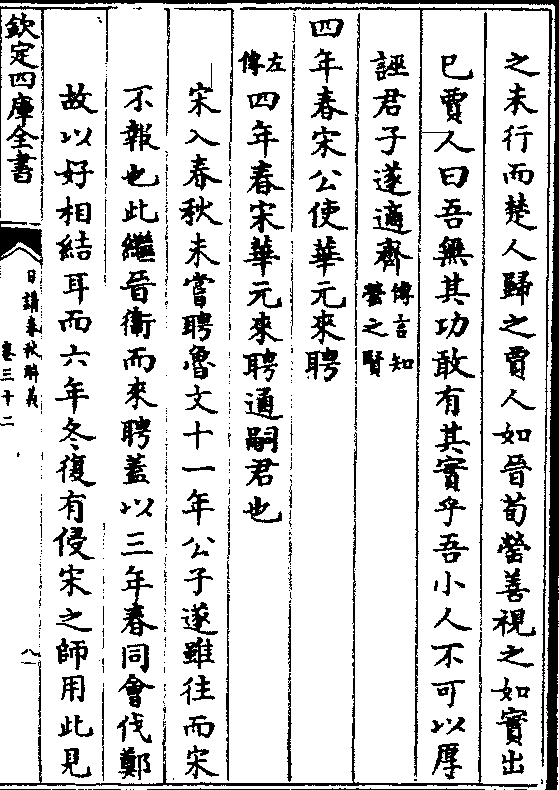 之未行而楚人歸之賈人如晉荀罃善視之如實出
已賈人曰吾無其功敢有其實乎吾小人不可以厚
誣君子遂適齊傳言知罃之賢
四年春宋公使華元來聘
左傳四年春宋華元來聘通嗣君也
宋入春秋未嘗聘魯文十一年公子遂雖往而宋
不報也此繼晉衛而來聘蓋以三年春同會伐鄭
故以好相結耳而六年冬復有侵宋之師用此見
欽定四庫全書
日講春秋解義
卷三十二
八